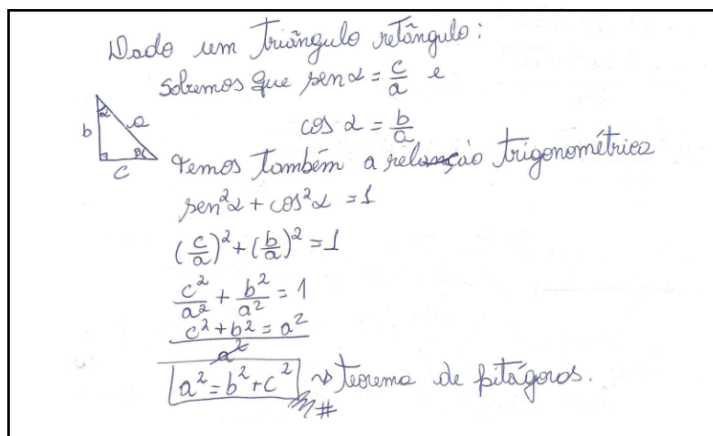 Dado um triângulo retângulo:
sabemos que sen α = c/a e
cos α = b/a
α
b a
c
Temos também a relação trigonométrica
sen²α + cos²α = 1
(c/a)² + (b/a)² = 1
c²/a² + b²/a² = 1
c² + b² = a²
a²
a² = b² + c² → teorema de pitágoras.
#